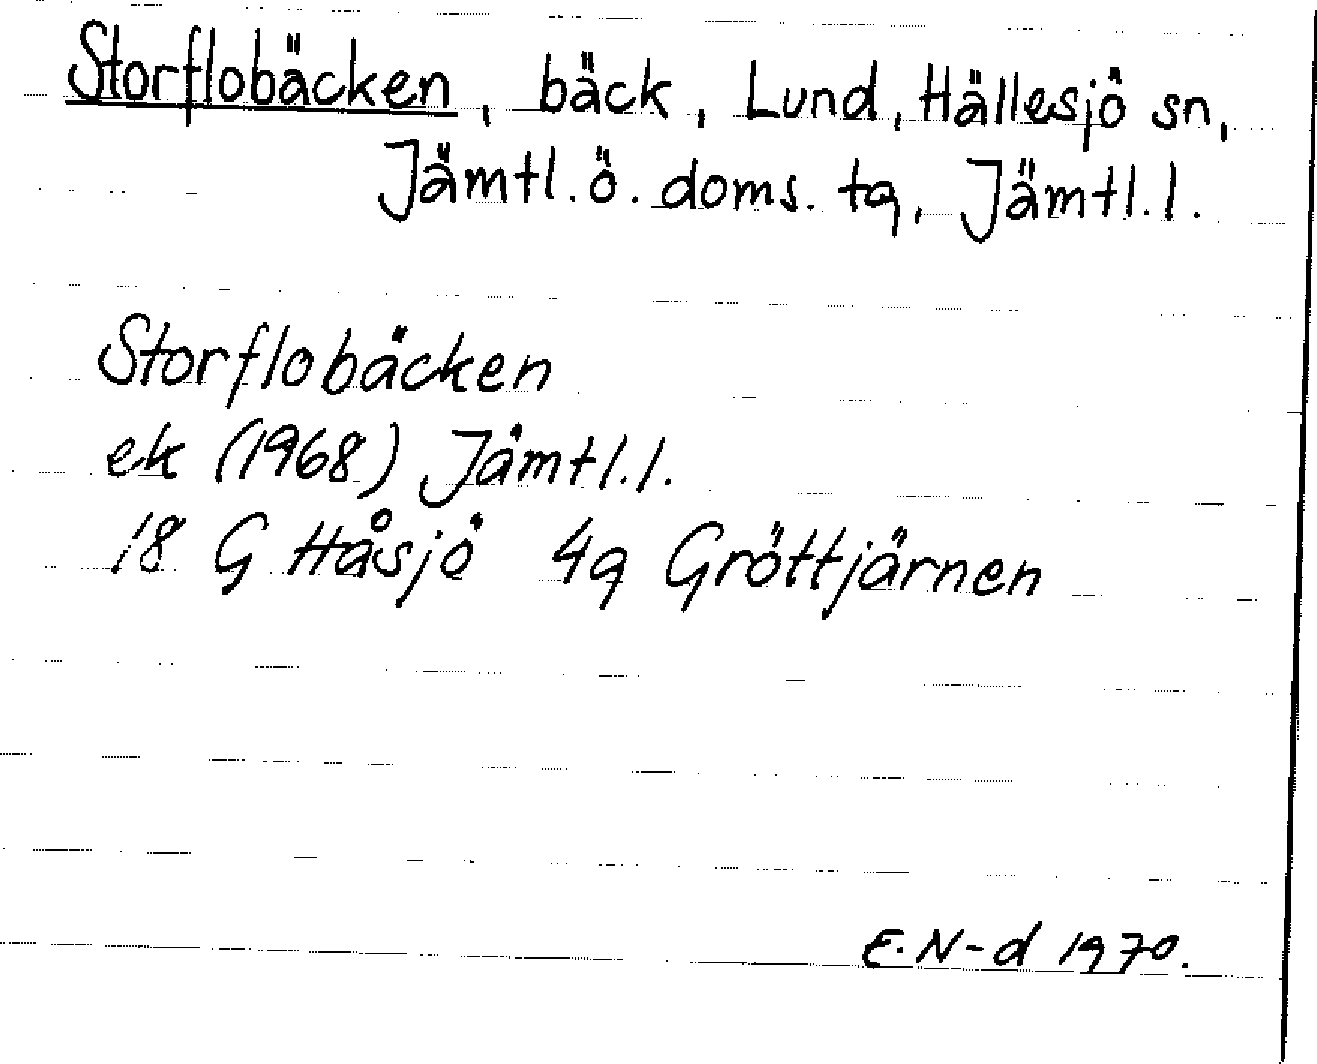 Storflobäcken, bäck, Lund, Hällesjö sn,
Jämtl. ö. doms. tg, Jämtl. l.
Storflobäcken
ek (1968) Jämtl. l.
18 G Håsjö 4g Gröttjärnen
E. N-d 1970.